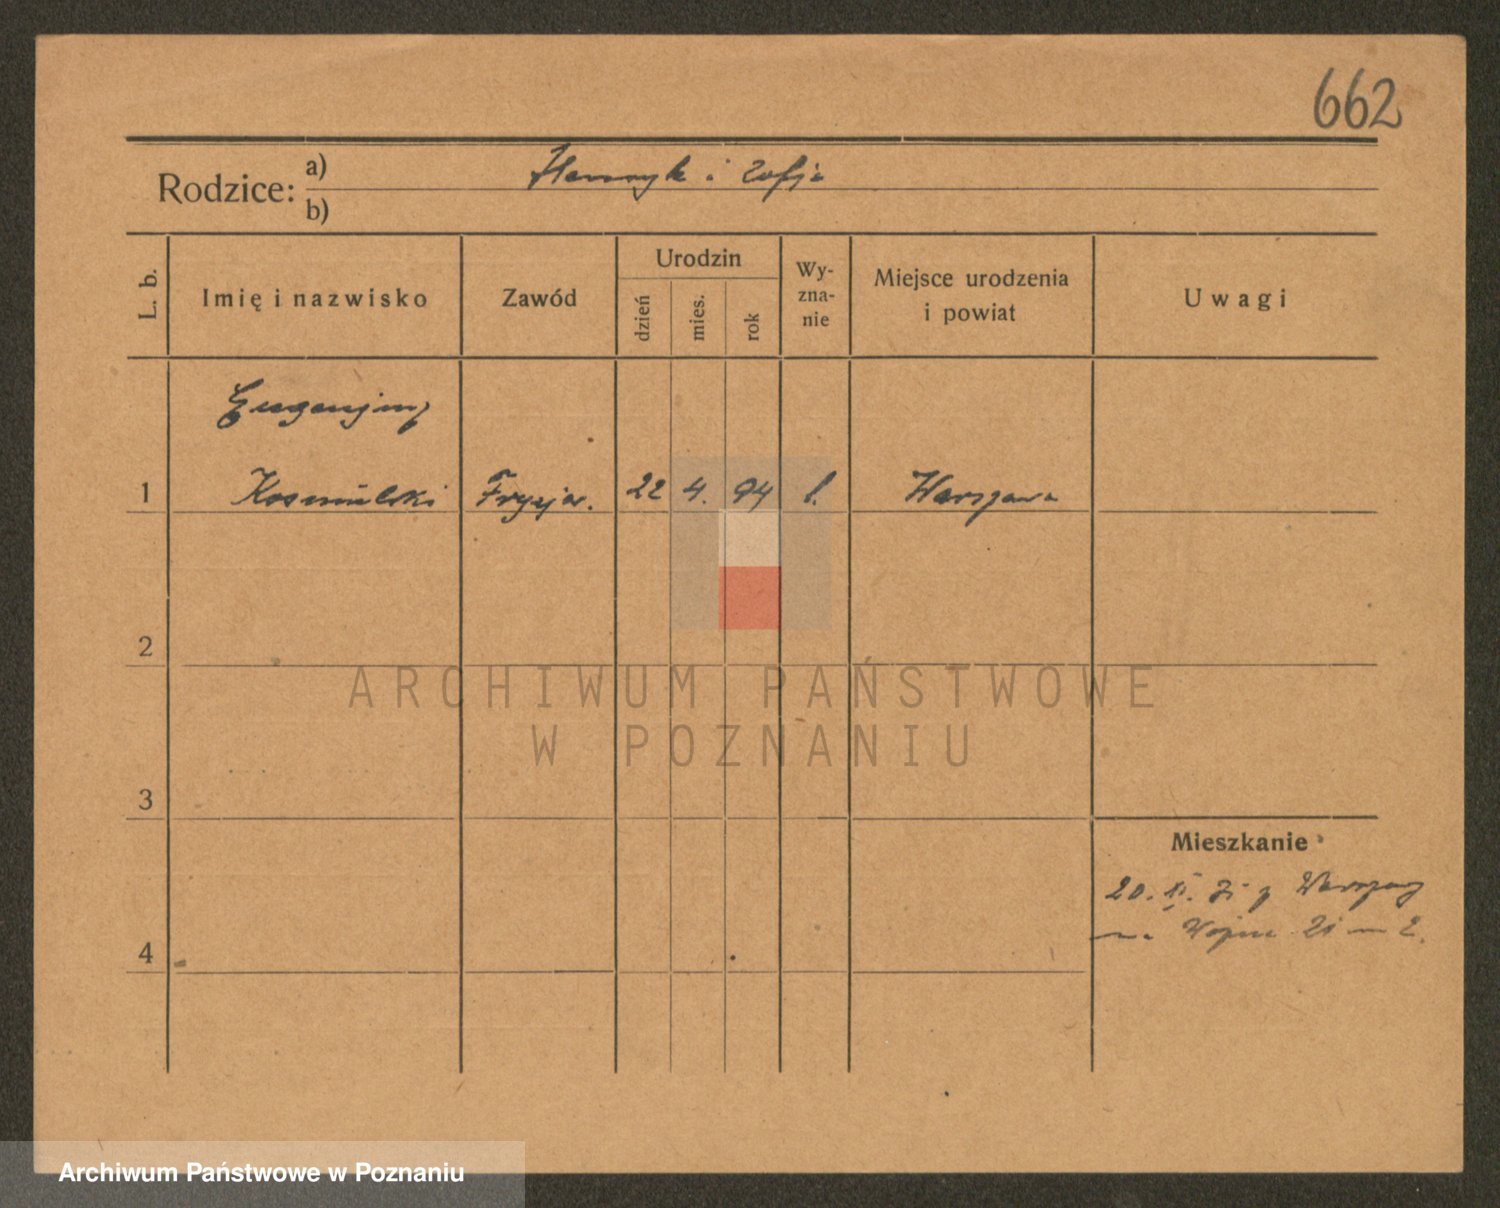 662
Rodzice:
a) Henryk i Zofja
b)
L. b.
Imię i nazwisko
Zawód
Urodzin
dzień
mies.
rok
Wy-
zna-
nie
Miejsce urodzenia
i powiat
Uwagi
Eugenjusz
1 Kosmulski Fryzjer. 22 4. 94 Warszawa
2
ARCHIWUM PAŃSTWOWE
W POZNANIU
3
Mieszkanie
20. z Warszawy
21 m 2.
4
Archiwum Państwowe w Poznaniu